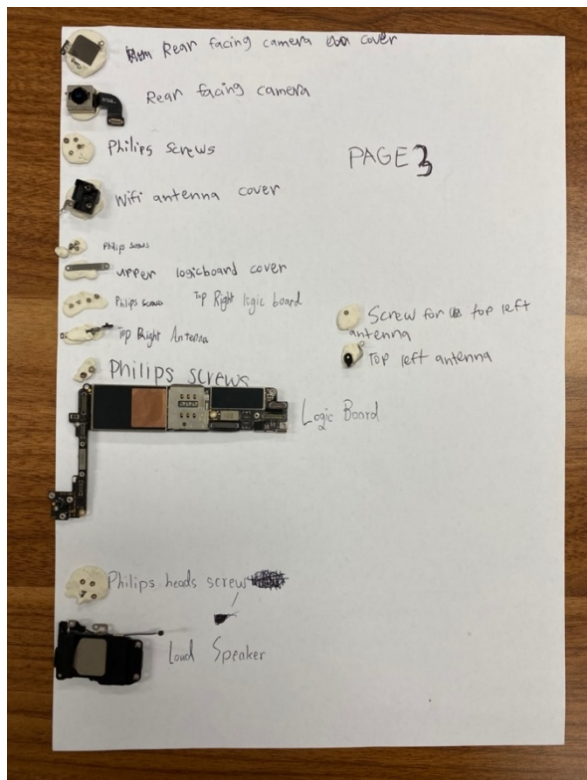 Rear facing camera cover
Rear facing camera
Philips screws
PAGE 3
Wifi antenna cover
Philips screws
upper logicboard cover
Philips screws Top Right logic board
Screw for top left
antenna
Top Right Antenna
Top left antenna
Philips screws
Logic Board
Philips heads screw
Loud Speaker